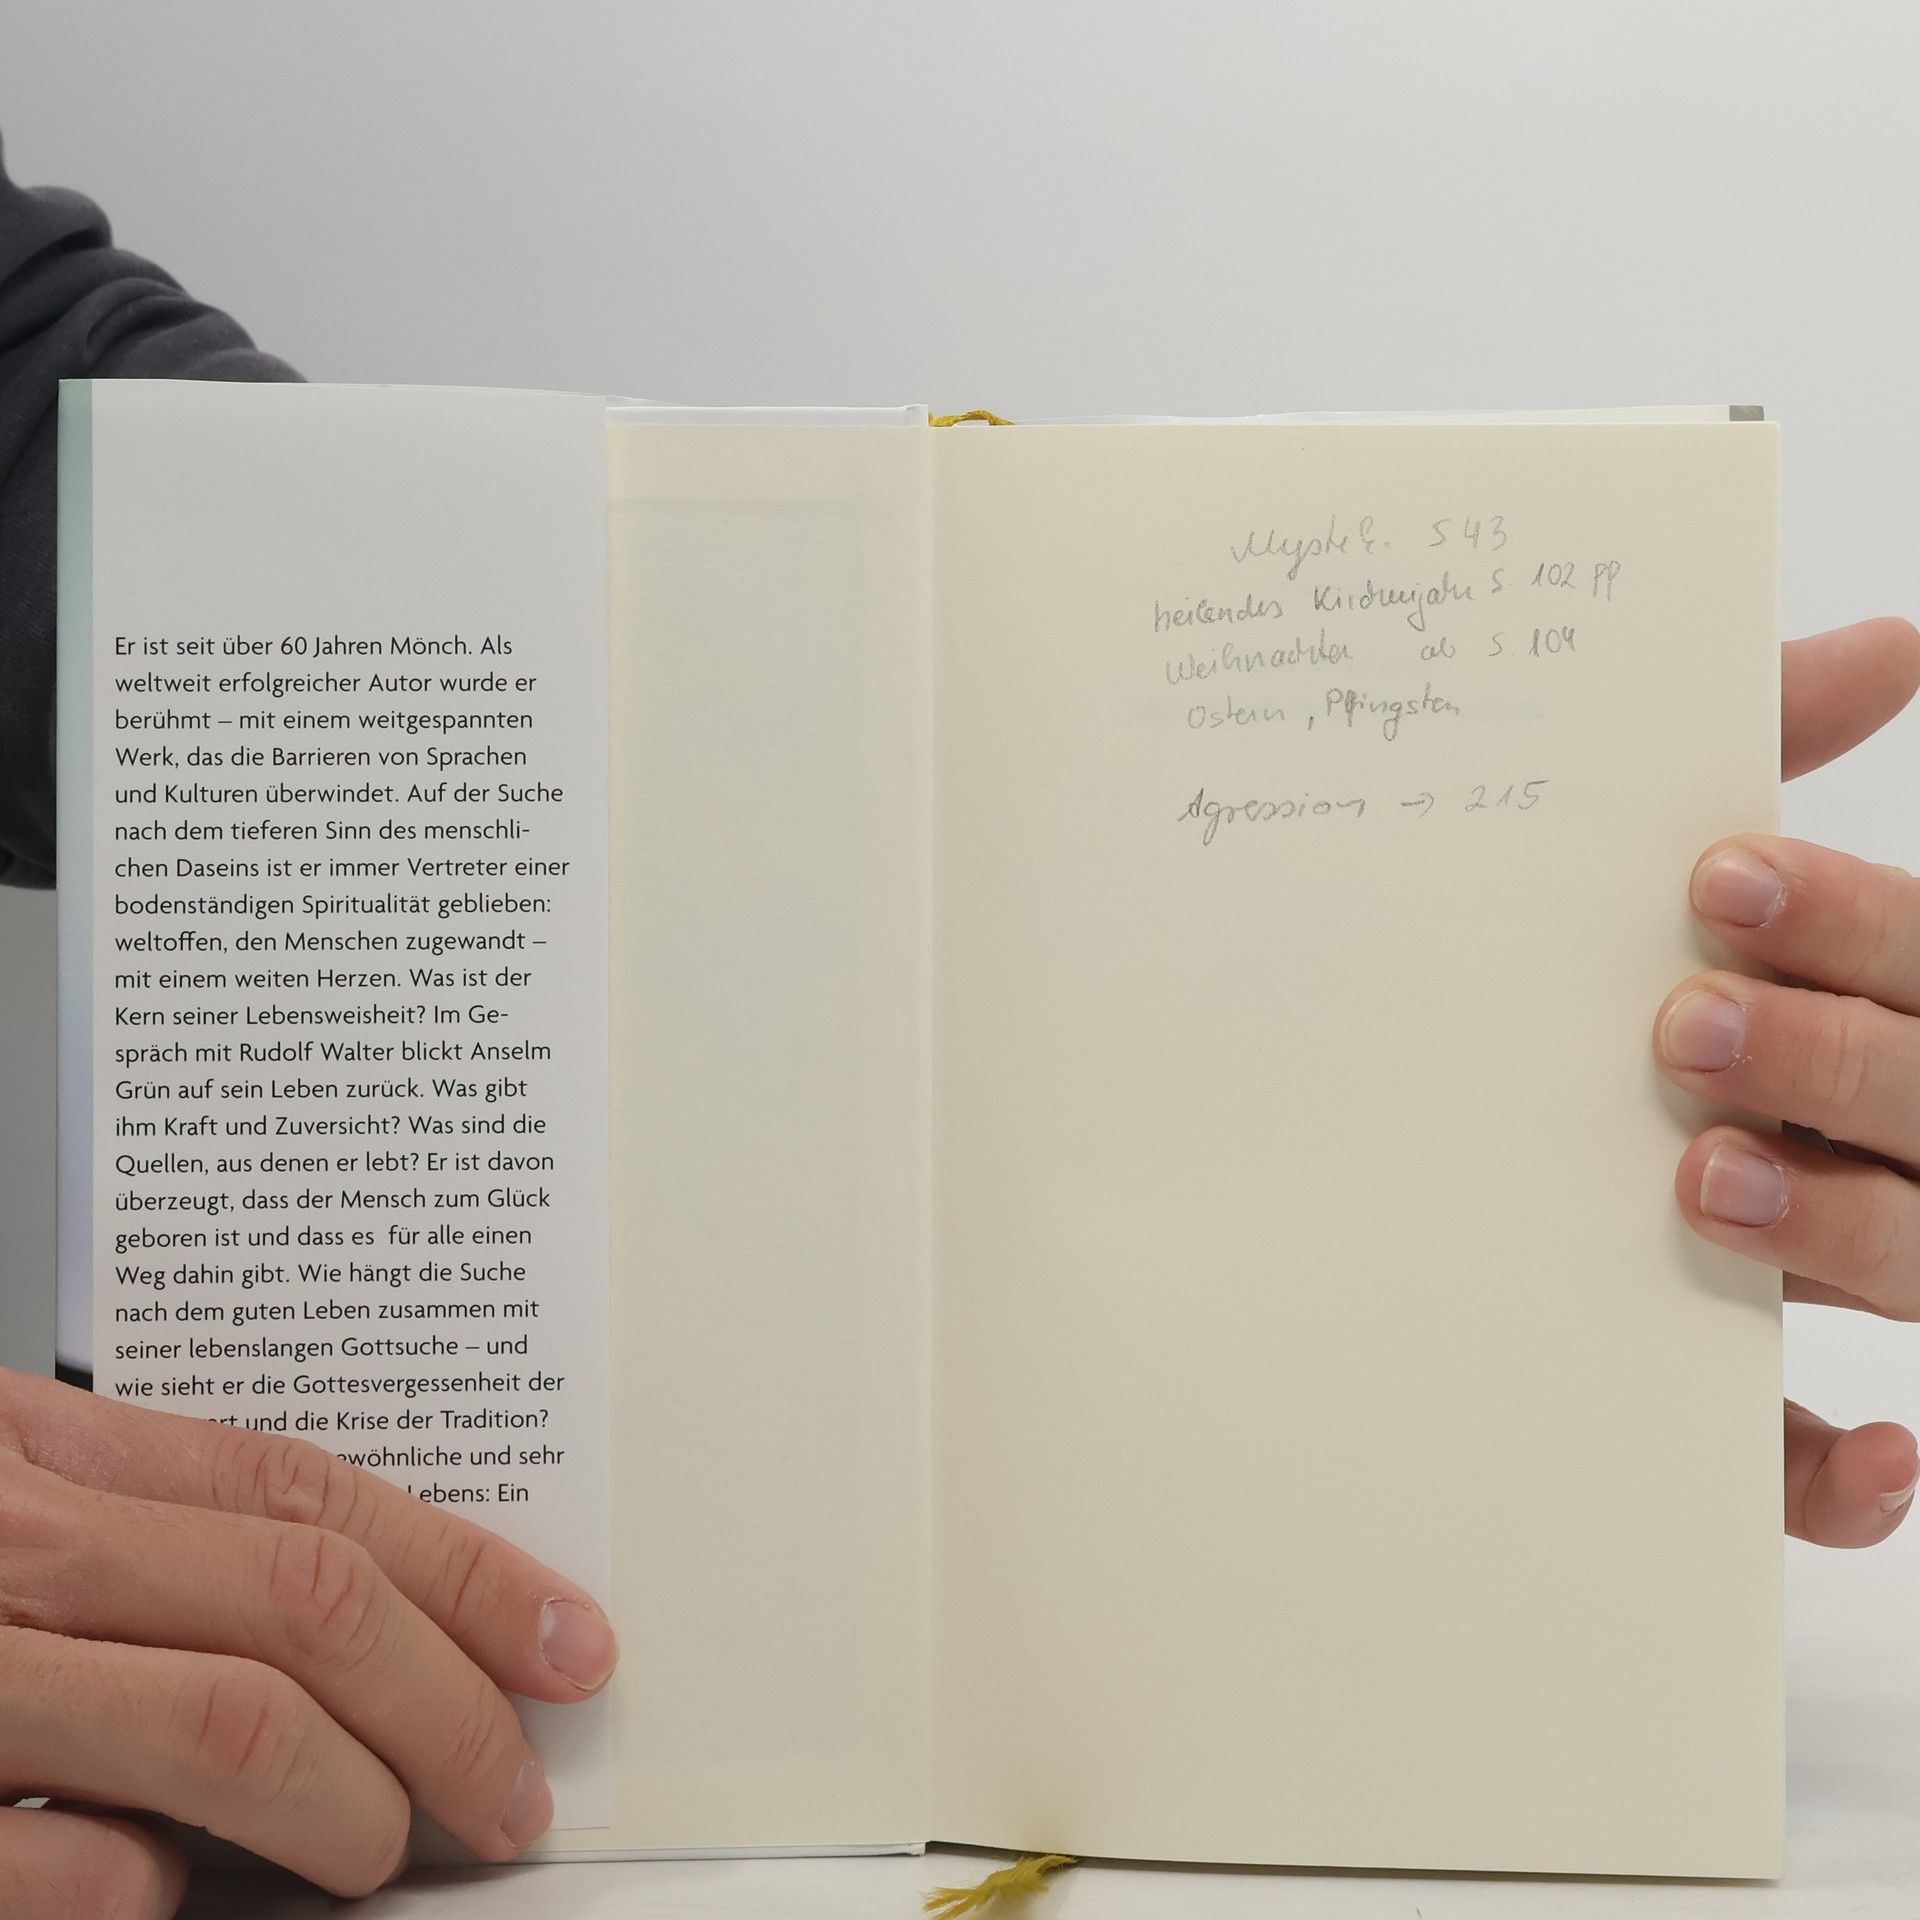 Er ist seit über 60 Jahren Mönch. Als
weltweit erfolgreicher Autor wurde er
berühmt – mit einem weitgespannten
Werk, das die Barrieren von Sprachen
und Kulturen überwindet. Auf der Suche
nach dem tieferen Sinn des menschli-
chen Daseins ist er immer Vertreter einer
bodenständigen Spiritualität geblieben:
weltoffen, den Menschen zugewandt –
mit einem weiten Herzen. Was ist der
Kern seiner Lebensweisheit? Im Ge-
spräch mit Rudolf Walter blickt Anselm
Grün auf sein Leben zurück. Was gibt
ihm Kraft und Zuversicht? Was sind die
Quellen, aus denen er lebt? Er ist davon
überzeugt, dass der Mensch zum Glück
geboren ist und dass es für alle einen
Weg dahin gibt. Wie hängt die Suche
nach dem guten Leben zusammen mit
seiner lebenslangen Gottsuche – und
wie sieht er die Gottesvergessenheit der
und die Krise der Tradition?
und sehr
Lebens: Ein
Mystik. S 43
heilendes Kirchenjahr S. 102 pp
Weihnachten ab S. 104
Ostern, Pfingsten
Agression → 215